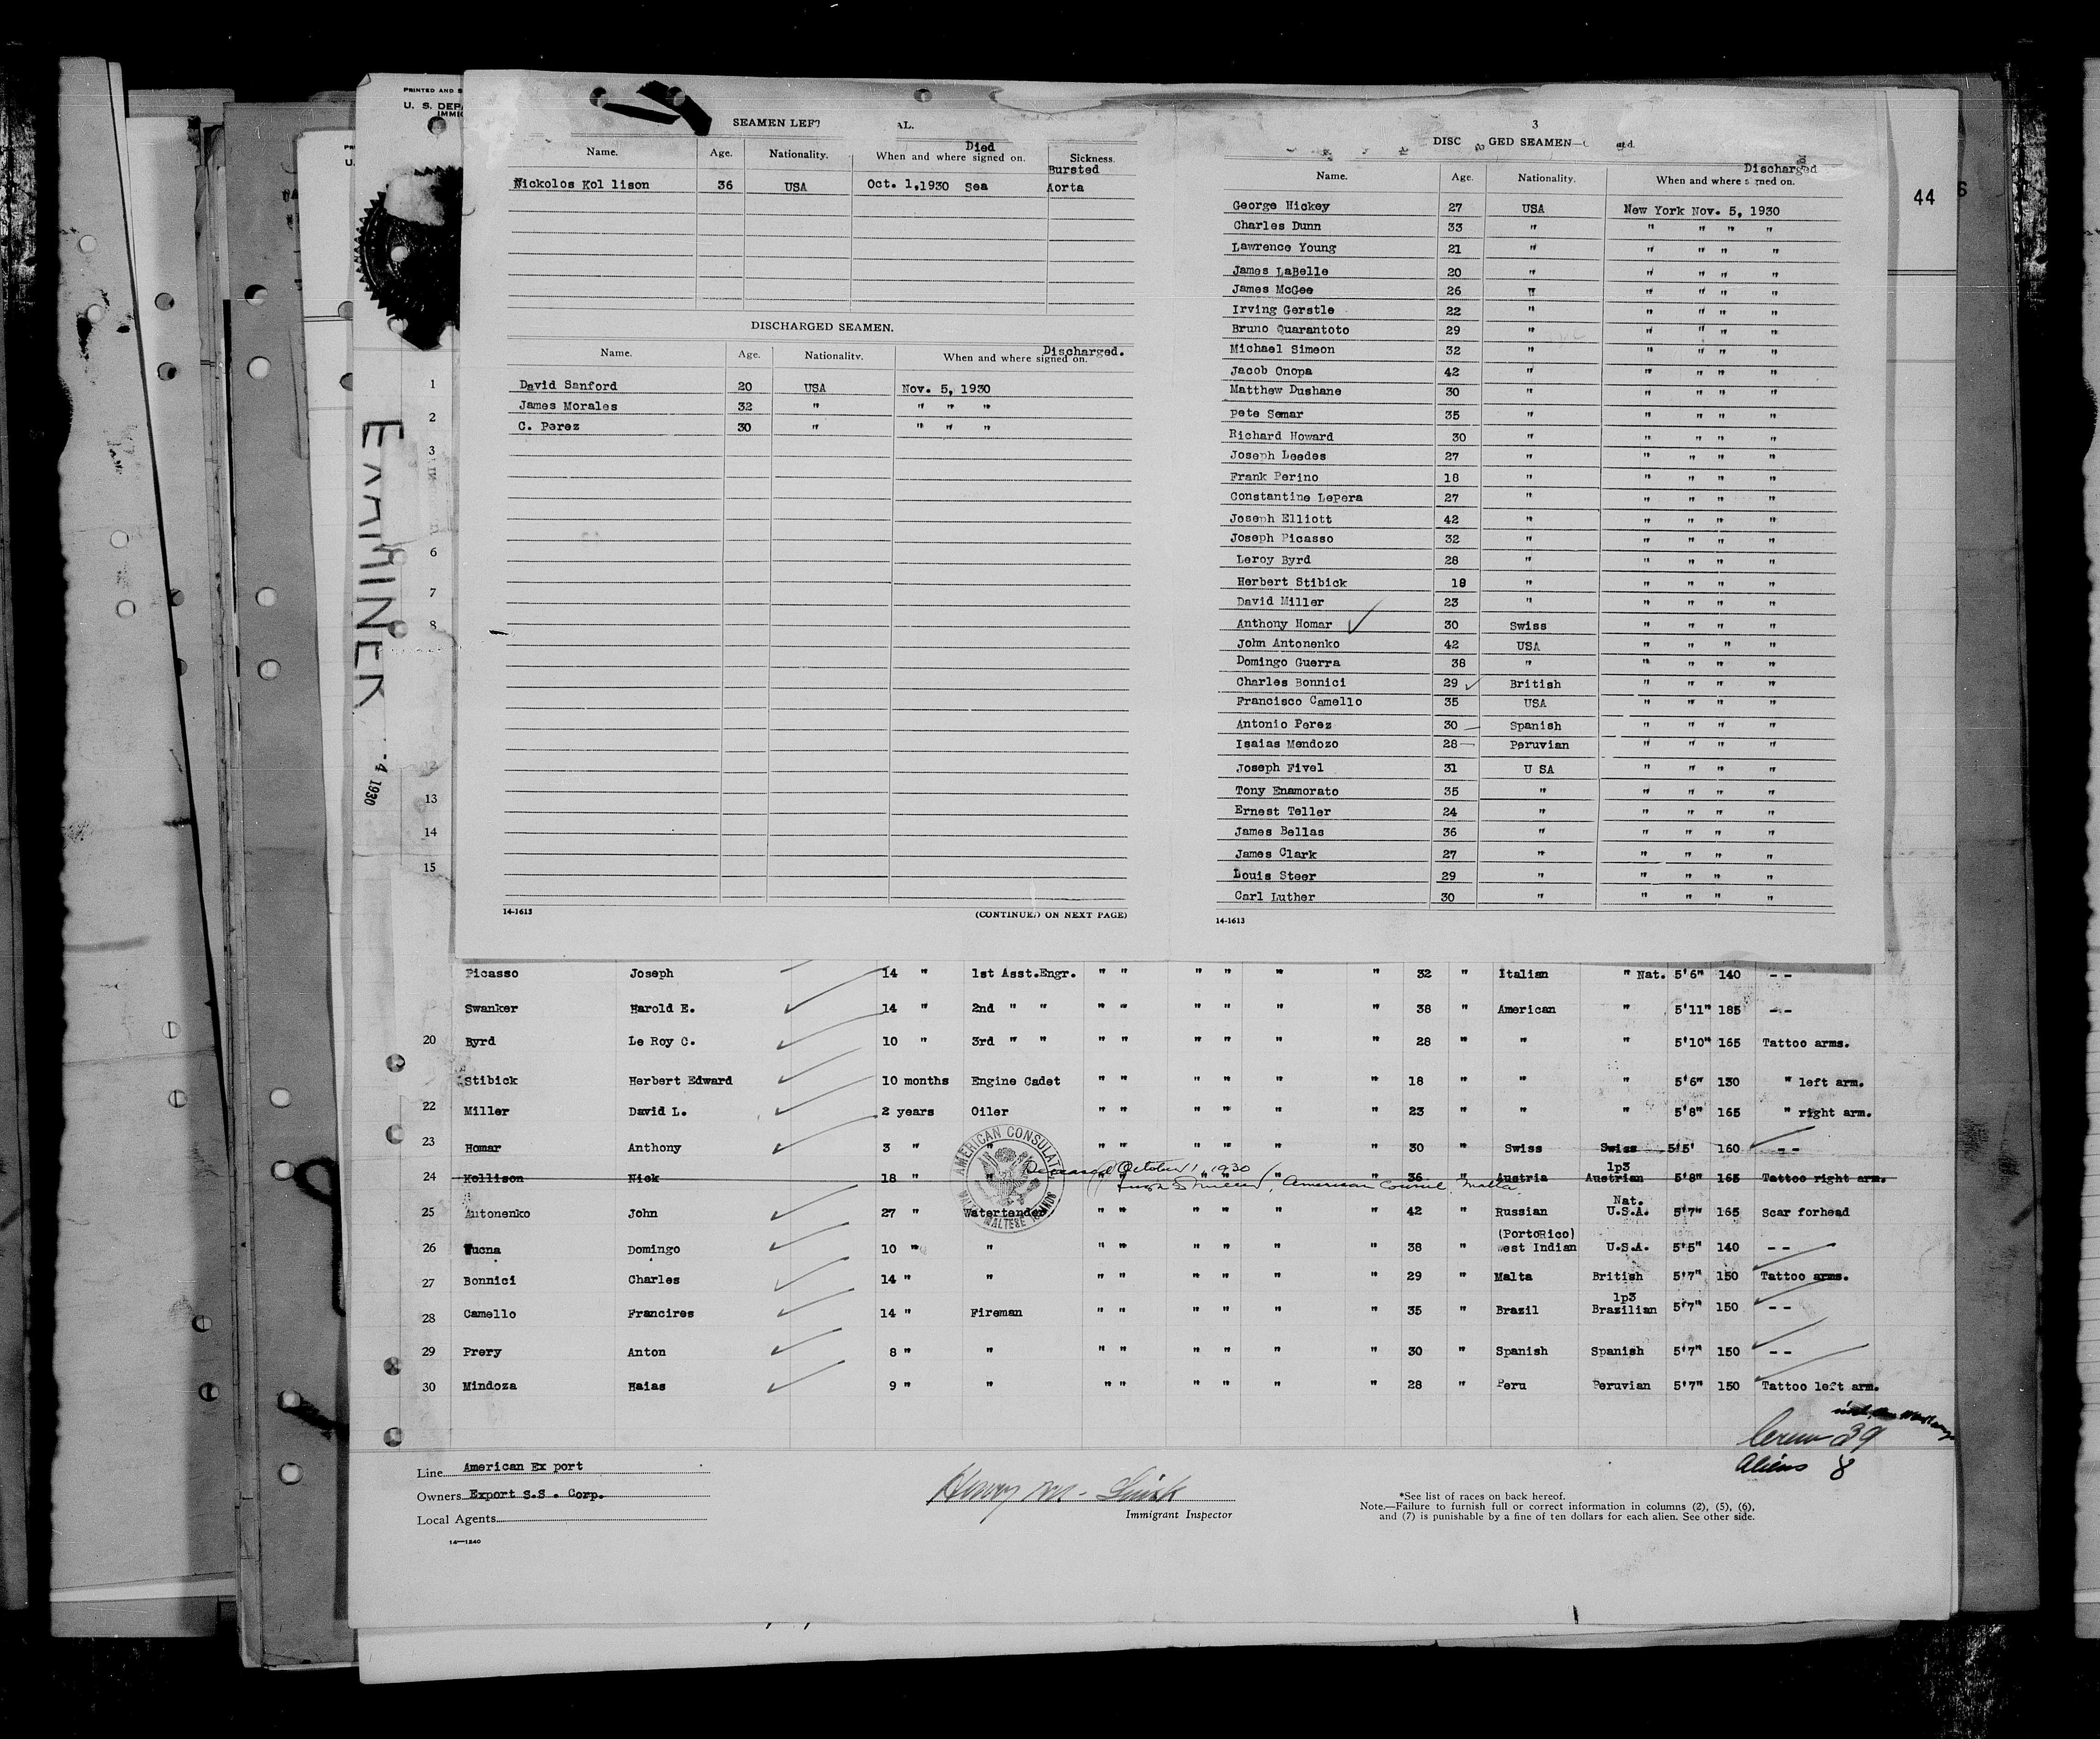 PRINTED AND
U. S. DEPA
IMMIG
SEAMEN LEFT AL.
Name. Age. Nationality. Died When and where signed on. Sickness.
Bursted
Nickolos Kol lison 36 USA Oct. 1,1930 Sea Aorta
DISCHARGED SEAMEN.
Name. Age. Nationality. When and where signed on. Discharged.
David Sanford 20 USA Nov. 5, 1930
James Morales 32 " " " "
C. Perez 30 " " " "
14-1613 (CONTINUED ON NEXT PAGE)
3
DISC GED SEAMEN—C td.
Discharged
Name. Age. Nationality. When and where signed on.
George Hickey 27 USA New York Nov. 5, 1930
Charles Dunn 33 " " " " "
Lawrence Young 21 " " " " "
James LaBelle 20 " " " " "
James McGee 26 " " " " "
Irving Gerstle 22 " " " " "
Bruno Quarantoto 29 " " " " "
Michael Simeon 32 " " " " "
Jacob Onopa 42 " " " " "
Matthew Dushane 30 " " " " "
Pete Semar 35 " " " " "
Richard Howard 30 " " " " "
Joseph Leedes 27 " " " " "
Frank Perino 18 " " " " "
Constantine LePera 27 " " " " "
Joseph Elliott 42 " " " " "
Joseph Picasso 32 " " " " "
Leroy Byrd 28 " " " " "
Herbert Stibick 18 " " " " "
David Miller 23 " " " " "
Anthony Homar 30 Swiss " " " "
John Antonenko 42 USA " " " "
Domingo Guerra 38 " " " " "
Charles Bonnici 29 British " " " "
Francisco Camello 35 USA " " " "
Antonio Perez 30 Spanish " " " "
Isaias Mendozo 28 Peruvian " " " "
Joseph Fivel 31 U SA " " " "
Tony Enamorato 35 " " " " "
Ernest Teller 24 " " " " "
James Bellas 36 " " " " "
James Clark 27 " " " " "
Louis Steer 29 " " " " "
Carl Luther 30 " " " " "
14-1613
44
1
2
3
6
7
8
13
14
15
EXAMINER
4 1930
Picasso Joseph 14 " 1st Asst.Engr. " " " " " " 32 " Italian " Nat. 5'6" 140 --
Swanker Harold E. 14 " 2nd " " " " " " " " 38 " American " 5'11" 185 --
20 Byrd Le Roy C. 10 " 3rd " " " " " " " " 28 " " " 5'10" 165 Tattoo arms.
Stibick Herbert Edward 10 months Engine Cadet " " " " " " 18 " " " 5'6" 130 " left arm.
22 Miller David L. 2 years Oiler " " " " " " 23 " " " 5'8" 165 " right arm.
23 Homar Anthony 3 " " " " " " " " 30 " Swiss Swiss 5'5' 160 --
Deceased October 1, 1930
lp3
24 Kellison Nick 18 " " " " " 36 " Austria Austrian 5'8" 165 Tattoo right arm.
American Consul, Malta.
AMERICAN CONSULATE
MALTESE ISLANDS
Nat.
25 Antonenko John 27 " Watertender " " " " " " 42 " Russian U.S.A. 5'7" 165 Scar forhead
(PortoRico)
26 Tucna Domingo 10 " " " " " " " " 38 " West Indian U.S.A. 5'5" 140 --
27 Bonnici Charles 14 " " " " " " " " 29 " Malta British 5'7" 150 Tattoo arms.
lp3
28 Camello Francires 14 " Fireman " " " " " " 35 " Brazil Brazilian 5'7" 150 --
29 Prery Anton 8 " " " " " " " " 30 " Spanish Spanish 5'7" 150 --
30 Mindoza Haias 9 " " " " " " " " 28 " Peru Peruvian 5'7" 150 Tattoo left arm.
Crew 39
Aliens 8
Line American Ex port
Owners Export S.S. Corp.
Local Agents
14—1240
Immigrant Inspector
*See list of races on back hereof.
Note.—Failure to furnish full or correct information in columns (2), (5), (6),
and (7) is punishable by a fine of ten dollars for each alien. See other side.